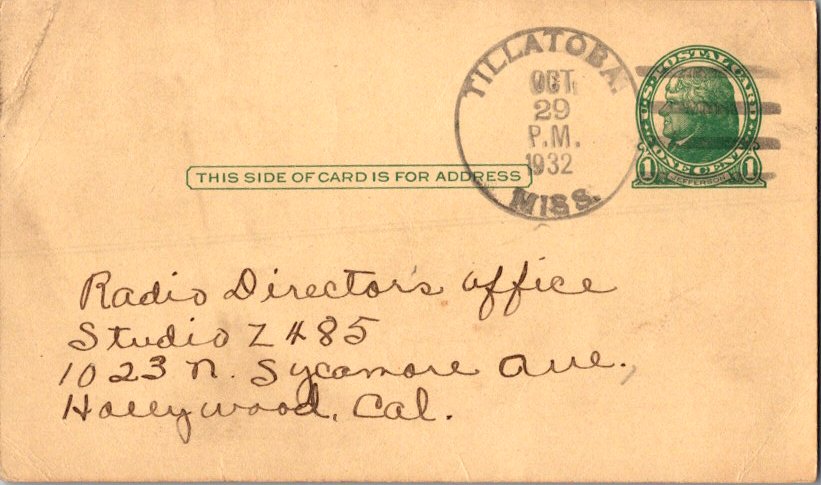 TILLATOBA.
OCT.
29
P.M.
1932
MISS.
U.S. POSTAL CARD
1 ONE CENT 1
JEFFERSON
THIS SIDE OF CARD IS FOR ADDRESS
Radio Director's office
Studio Z 485
1023 N. Sycamore Ave.,
Hollywood, Cal.